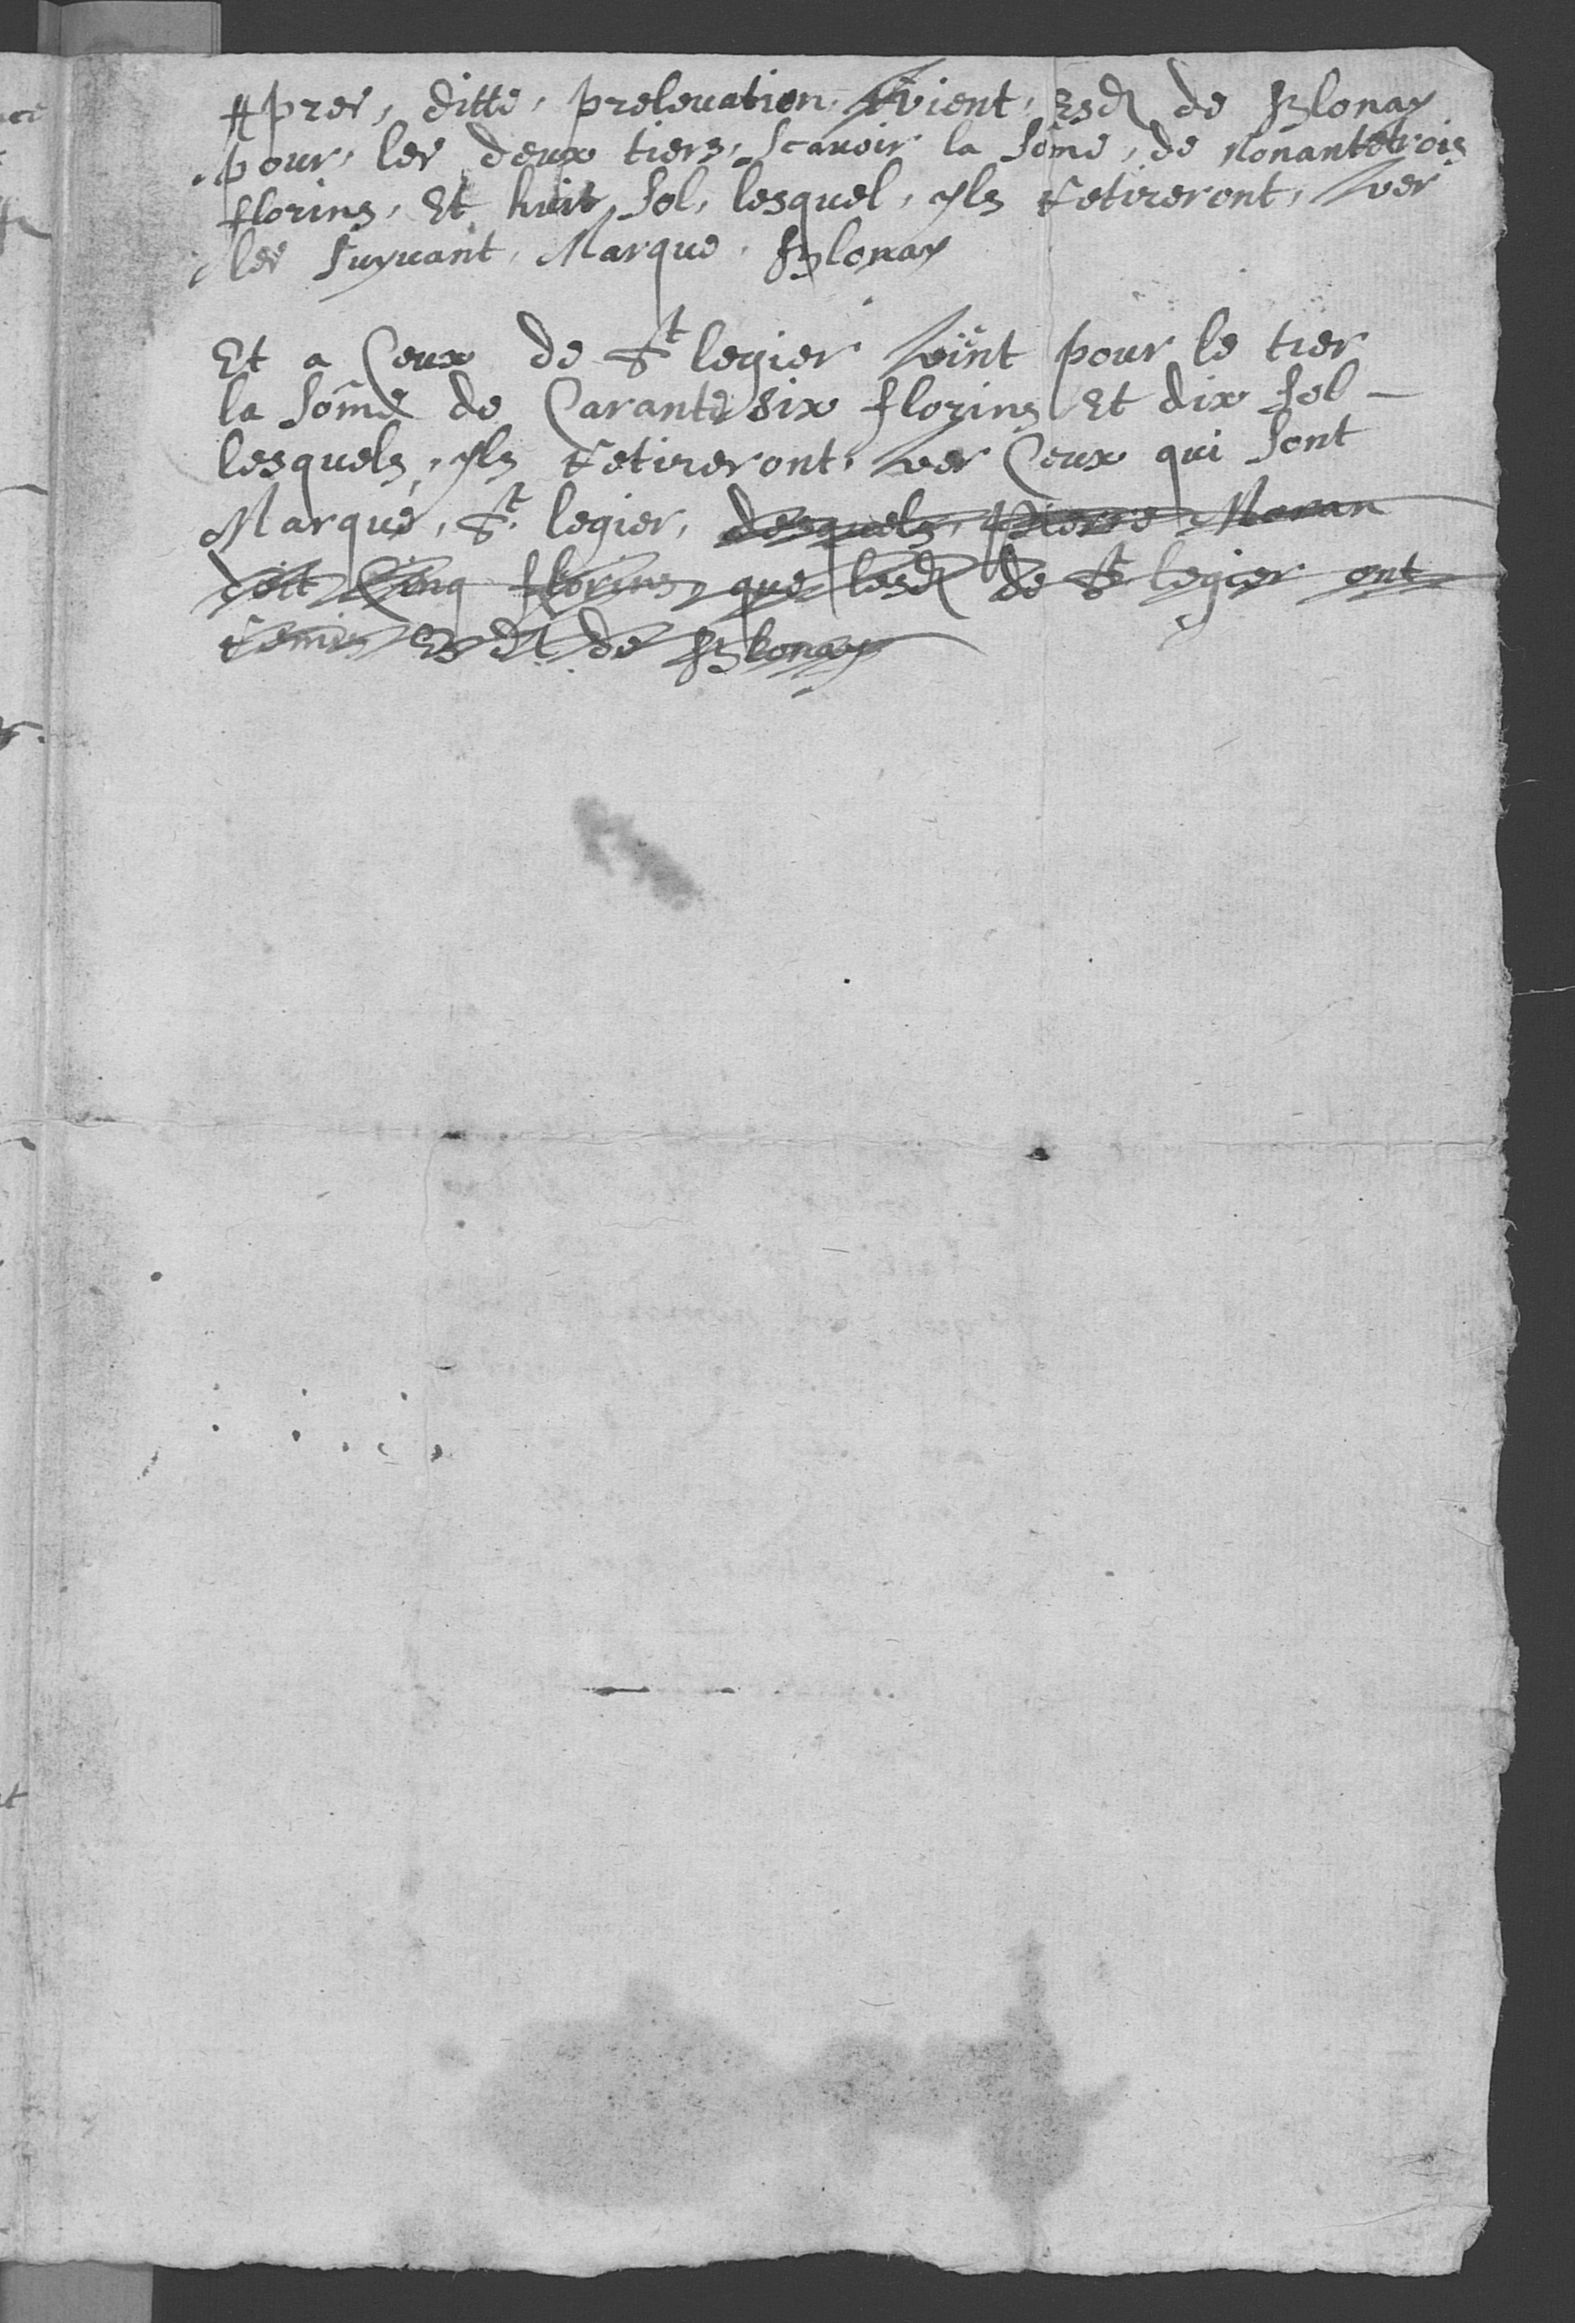 Apres, ditte, prelevation, Vient, Esd de Blonay
pour, les deux tiers, Scavoir la Sôme, de Nonantetrois
florins, Et huit Sol, lesquel, yls retireront, ver
les Suyvant, Marque, Blonay
Et a Ceux de St legier vint pour le tier
la Sôme de Carante Six florins Et dix Sol -
lesquels, yls retireront, ver Ceux qui Sont
Marque, St legier, desquels, Pierre
doit Cinq florins, que lesd de St legier ont
remis Esd de Blonay